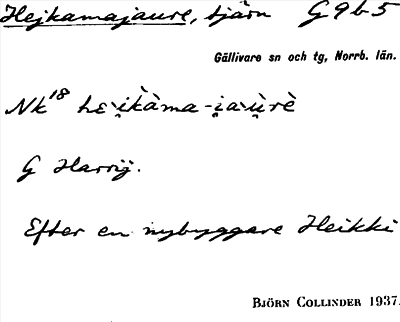 Hejkamajaure, tjärn G9b5
Gällivare sn och tg, Norrb. län.
Nk18 hɛ̀i̯kàma-i̯au̯rè
G Harrij.
Efter en nybyggare Heikki
BJÖRN COLLINDER 1937.